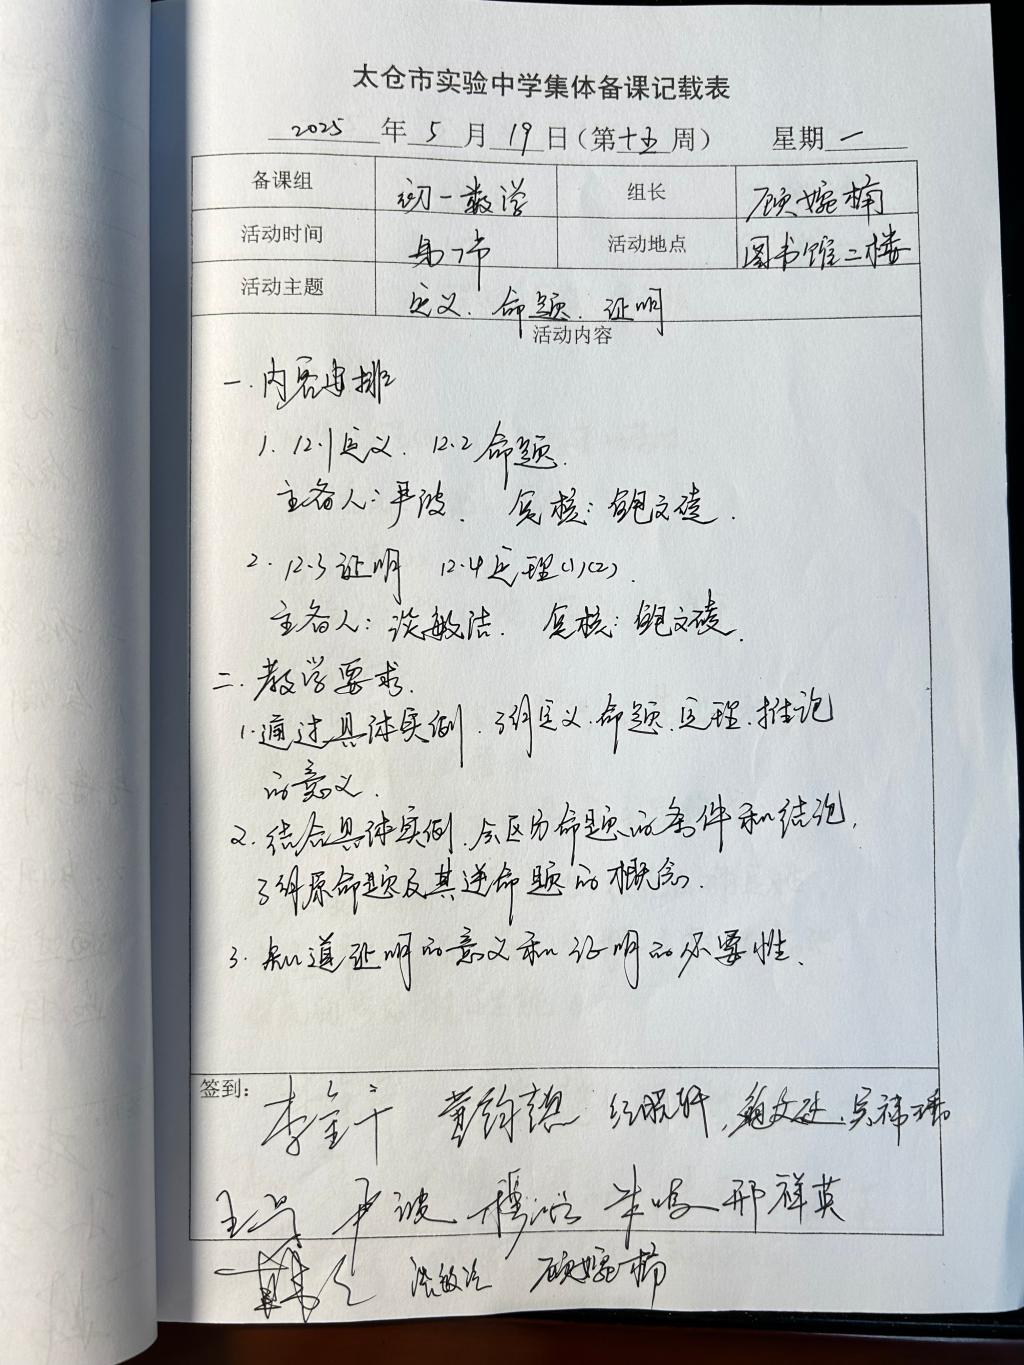 太仓市实验中学集体备课记载表
2025 年 5 月 19 日（第十五周） 星期一
备课组 初一数学 组长 顾婉楠
活动时间 周一下午 活动地点 图书馆二楼
活动主题 定义、命题、证明
活动内容
一. 内容安排
1. 12.1定义. 12.2 命题.
主备人: 严波. 复核: 鲍文
2. 12.3 证明 12.4 定理(1)(2).
主备人: 谈敏洁. 复核: 鲍文
二. 教学要求.
1. 通过具体实例, 了解定义.命题.定理.推论
的意义.
2. 结合具体实例, 会区分命题的条件和结论,
了解原命题及其逆命题的概念.
3. 知道证明的意义和证明的必要性.
签到:
严波 邢祥英
谈敏洁 顾婉楠